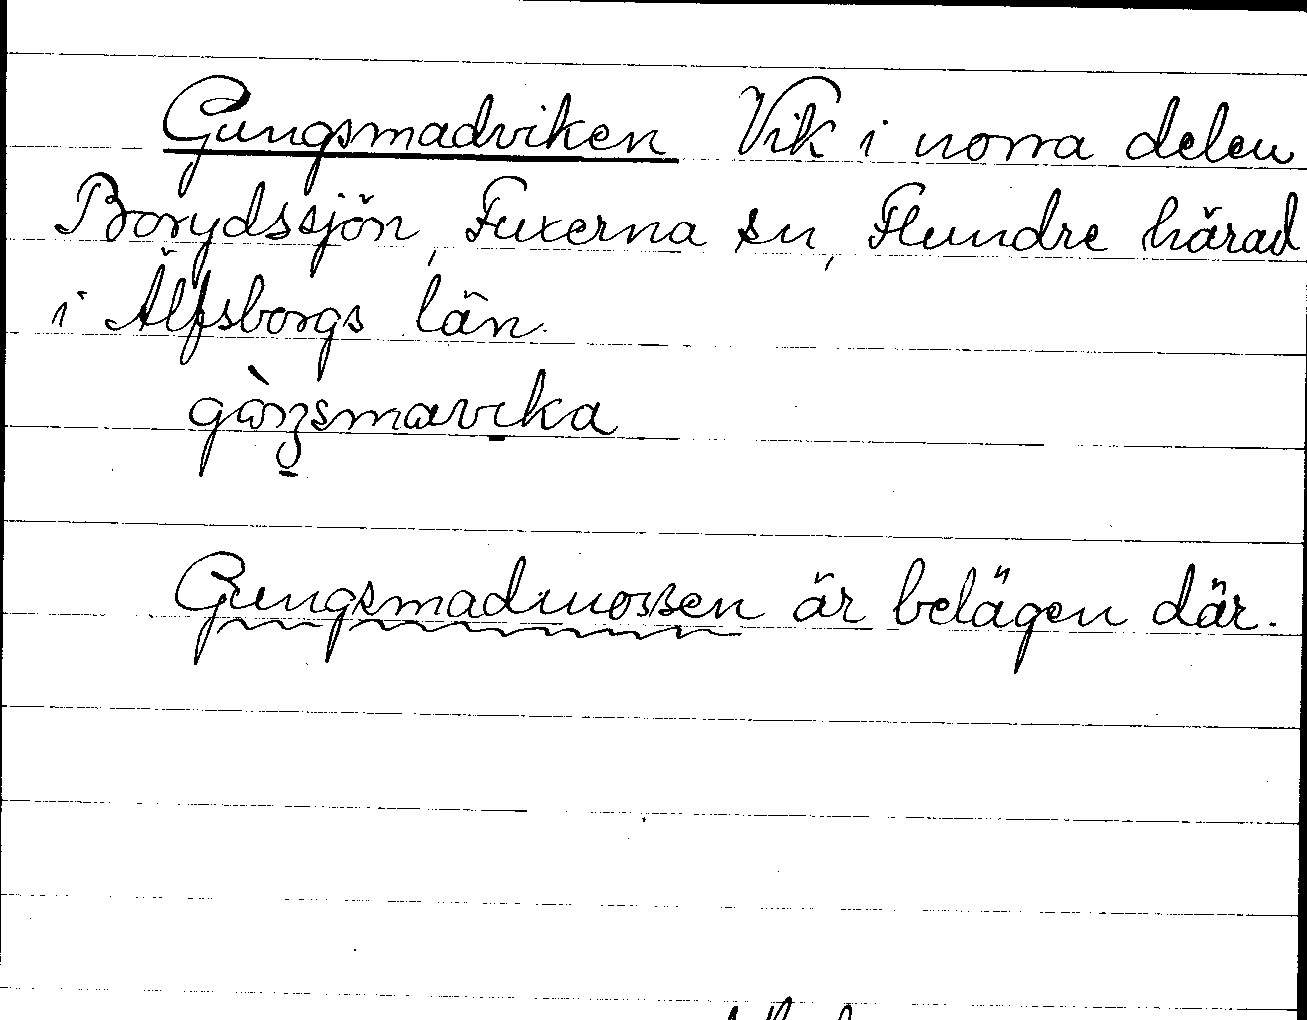 Gungsmadviken Vik i norra delen
Borydssjön, Fuxerna sn, Flundre härad
i Älfsborgs län.
gàŋsmavika
Gungsmadmossen är belägen där.